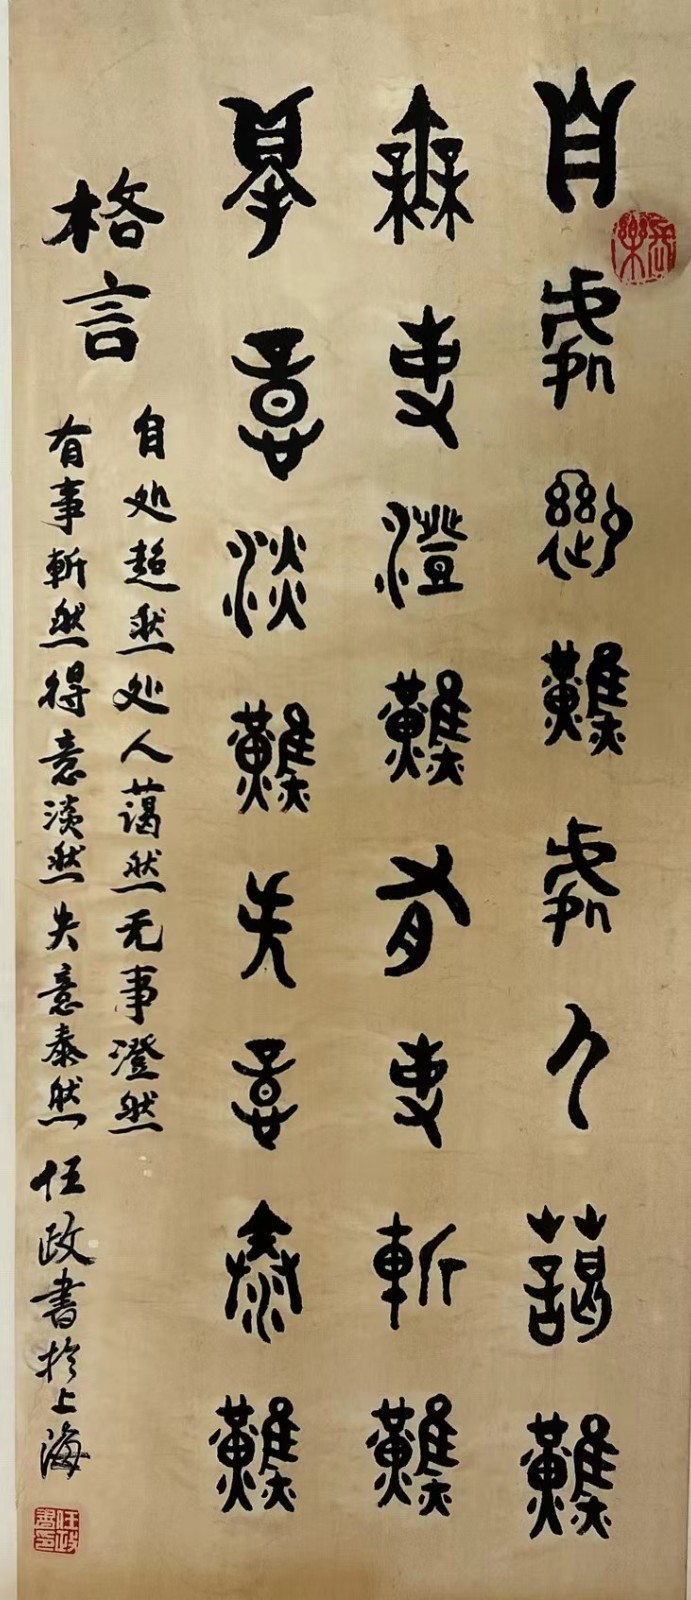 自處超然處人藹然
無事澄然有事斬然
得意淡然失意泰然
格言
自处超然处人蔼然无事澄然
有事斬然得意淡然失意泰然 任政書於上海